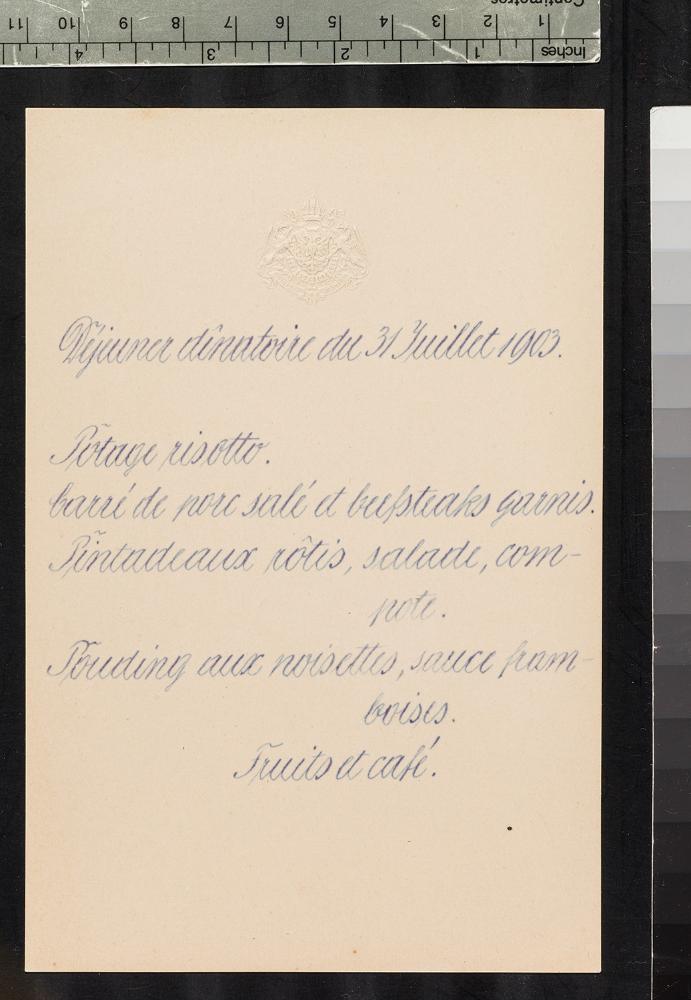 Centimetres
1 2 3 4 5 6 7 8 9 10 11
Inches 1 2 3 4
Déjeuner dînatoire du 31 Juillet 1903.
Potage risotto.
Carré de porc salé et beefsteaks garnis.
Pintadeaux rôtis, salade, com-
pote.
Pouding aux noisettes, sauce fram-
boises.
Fruits et café.